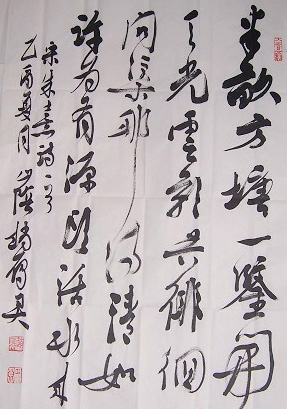 半畝方塘一鑒開
天光雲影共徘徊
問渠那得清如
許為有源頭活水來
宋朱熹詩一首
乙酉夏月山陰楊